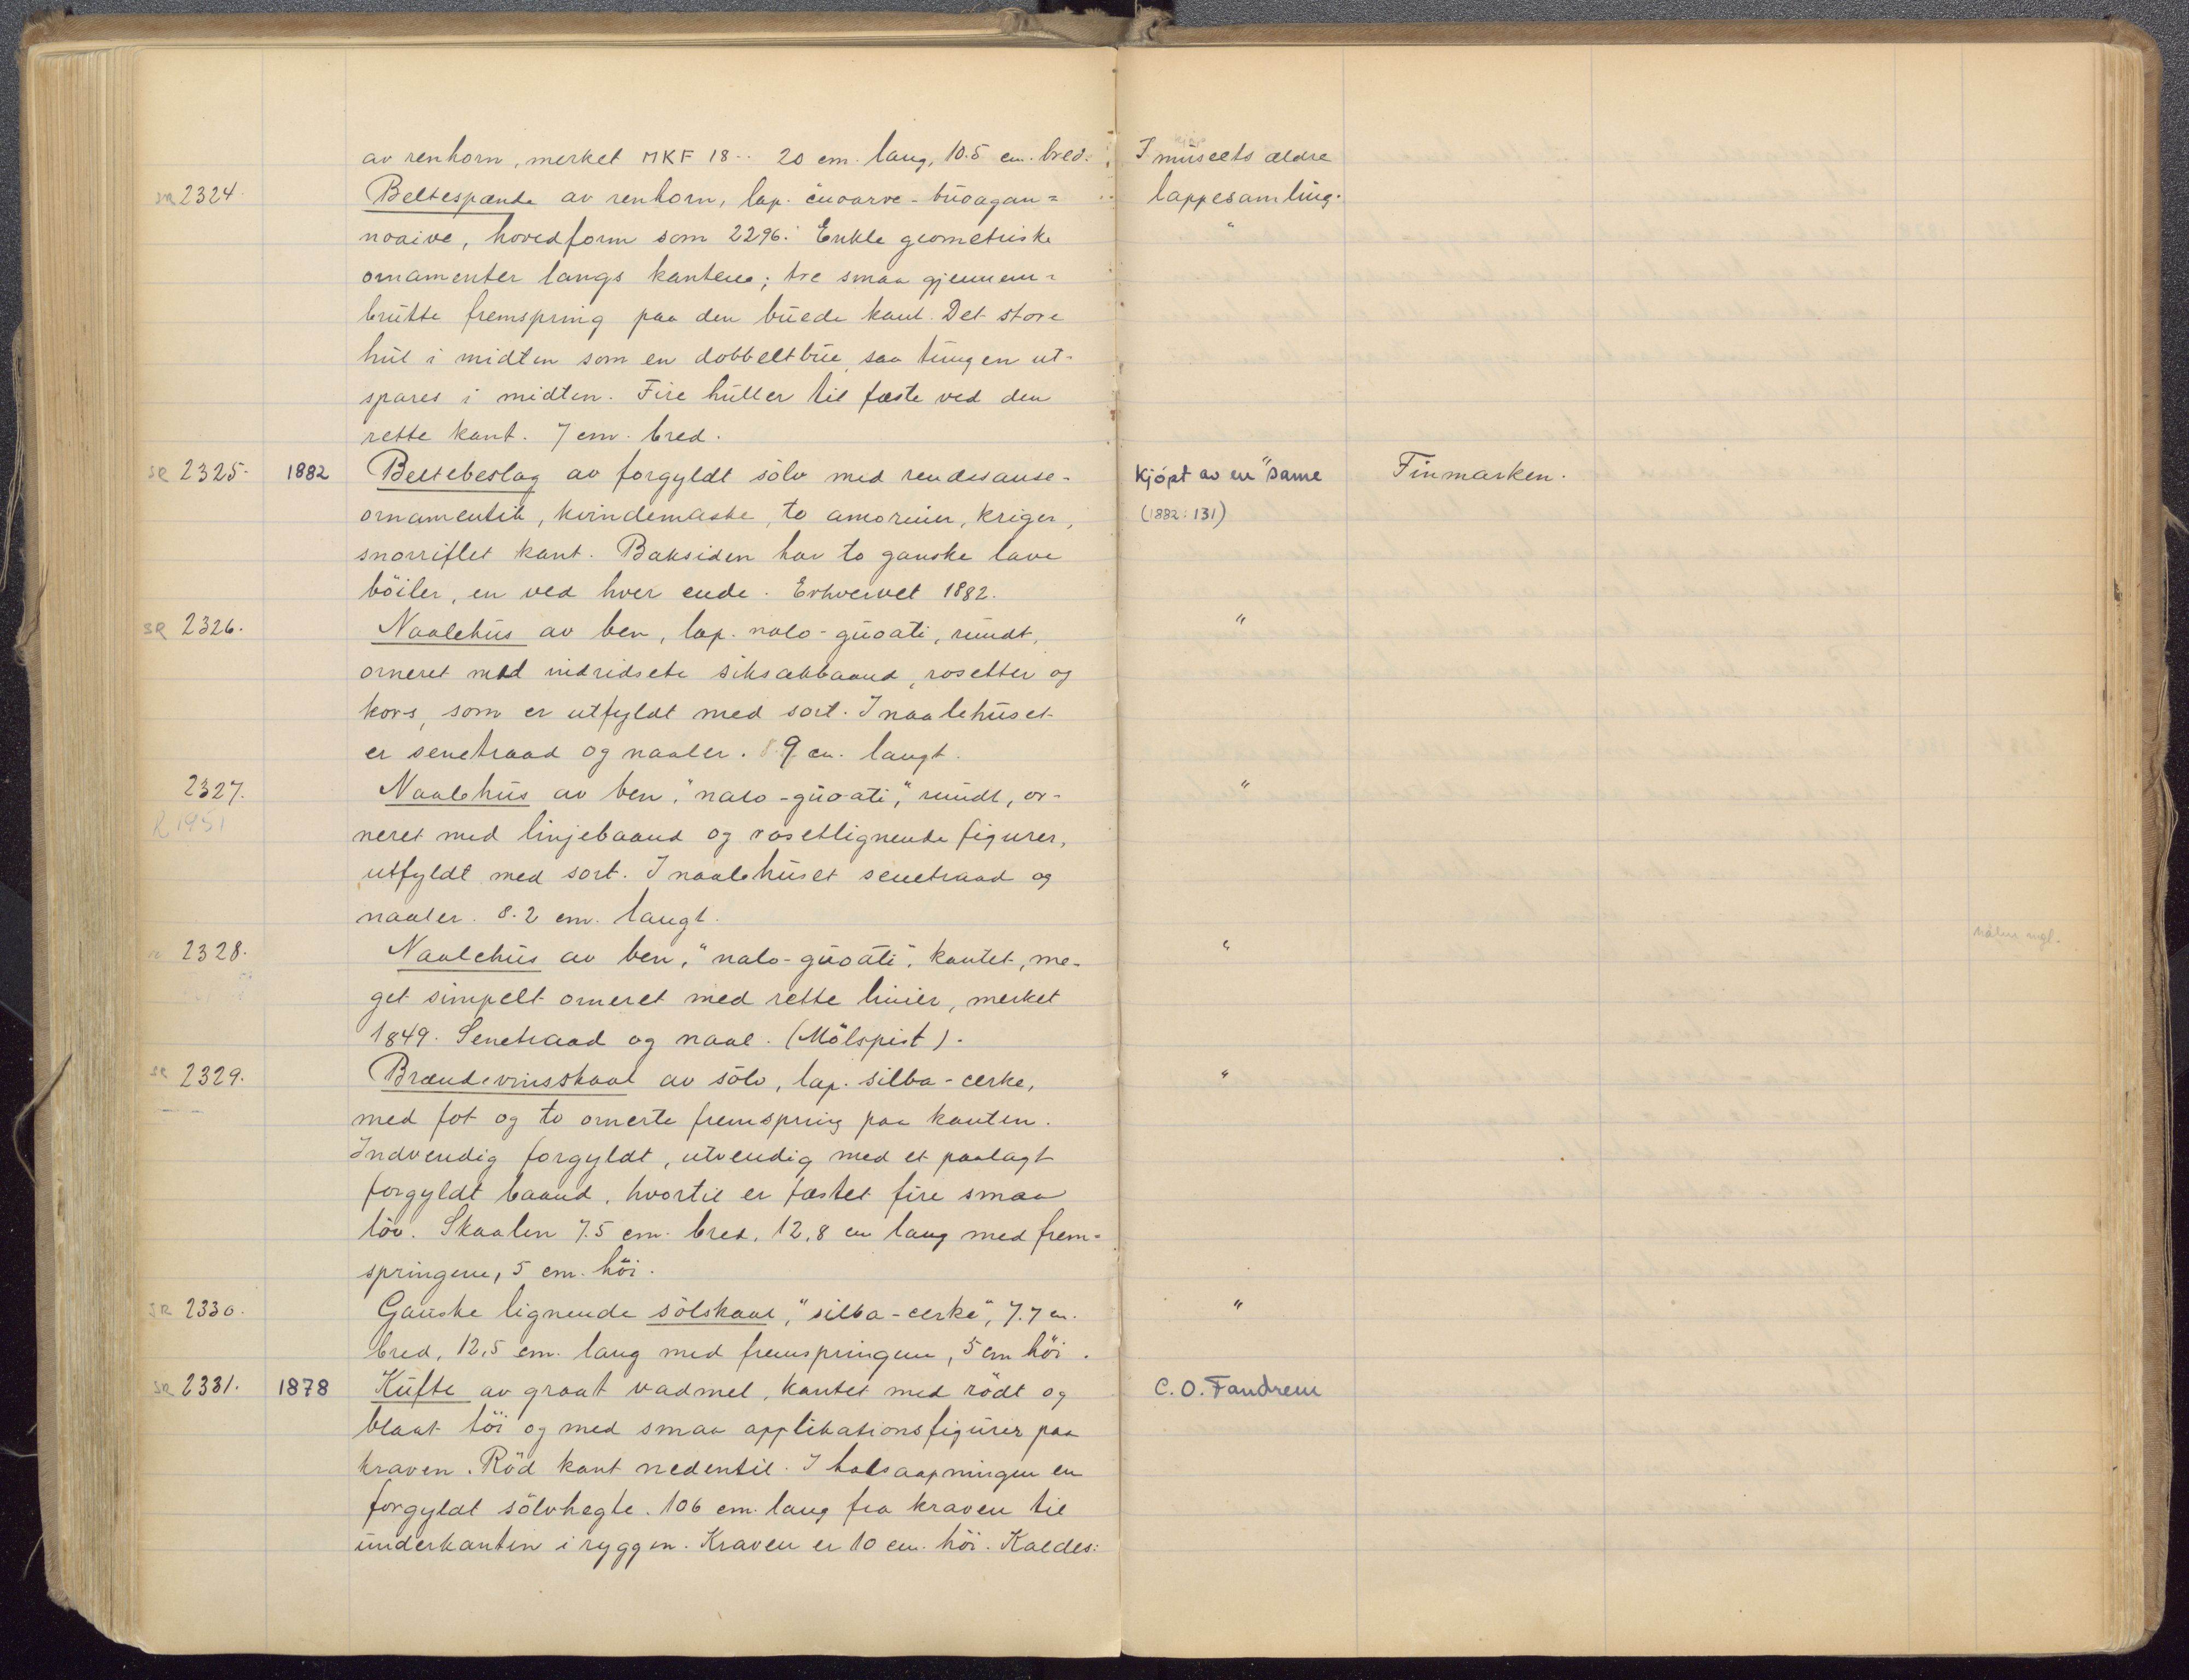 av renhorn, merket MKF 18.. 20 cm. lang, 10.5 cm. bred.
SR 2324. Beltespænde av renhorn, lap. čuoarve-buoagan=
noaive, hovedform som 2296. Enkle geometriske
ornamenter langs kantene; tre smaa gjennem=
brutte fremspring paa den buede kant. Det store
hul i midten som en dobbeltbue, saa tungen ut-
spares i midten. Fire huller til fæste ved den
rette kant. 7 cm. bred.
SR 2325. 1882 Beltebeslag av forgyldt sölv med renæsanse-
ornamentik, kvindemaske, to amoriner, kriger,
snorriflet kant. Baksiden har to ganske lave
böiler, en ved hver ende. Erhvervet 1882.
SR 2326. Naalehus av ben, lap. nalo-guoati, rundt,
orneret med indridsete siksakbaand, rosetter og
kors, som er utfyldt med sort. I naalehuset
er senetraad og naaler. 8.9 cm. langt.
2327. Naalehus av ben, "nalo-guoati", rundt, or-
R 1951 neret med linjebaand og rosetlignende figurer,
utfyldt med sort. I naalehuset senetraad og
naaler. 8.2 cm. langt.
2328. Naalehus av ben, "nalo-guoati", kantet, me-
get simpelt orneret med rette linier, merket
1849. Senetraad og naal. (Mölspist).
SR 2329. Brændevinsskaal av sölv, lap. silba-cerke,
med fot og to ornerte fremspring paa kanten.
Indvendig forgyldt, utvendig med et paalagt
forgyldt baand, hvortil er fæstet fire smaa
löv. Skaalen 7.5 cm. bred, 12,8 cm lang med frem=
springene, 5 cm. höi.
SR 2330. Ganske lignende sölskaal, "silba-cerke", 7.7 cm.
bred, 12,5 cm. lang med fremspringene, 5 cm höi.
SR 2331. 1878 Kufte av graat vadmel, kantet med rödt og
blaat töi og med smaa applikationsfigurer paa
kraven. Röd kant nedentil. I halsaapningen en
forgyldt sölvhegte. 106 cm. lang fra kraven til
underkanten i ryggen. Kraven er 10 cm. höi. Kaldes:
I museets ældre
lappesamling.
"
Kjöpt av en "same Finmarken.
(1882:131)
"
"
"
"
"
C. O. Fandrem